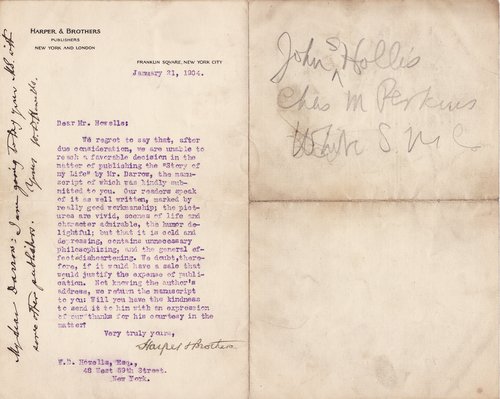 HARPER & BROTHERS
PUBLISHERS
NEW YORK AND LONDON
FRANKLIN SQUARE, NEW YORK CITY
January 21, 1904.
Dear Mr. Howells:
We regret to say that, after
due consideration, we are unable to
reach a favorable decision in the
matter of publishing the "Story of
my Life" by Mr. Darrow, the manu-
script of which was kindly sub-
mitted to you. Our readers speak
of it as well written, marked by
really good workmanship; the pict-
ures are vivid, scenes of life and
character admirable, the humor de-
lightful; but that it is cold and
depressing, contains unnecessary
philosophizing, and the general ef-
fect disheartening. We doubt, there-
fore, if it would have a sale that
would justify the expense of publi-
cation. Not knowing the author's
address, we return the manuscript
to you. Will you have the kindness
to send it to him with an expression
of our thanks for his courtesy in the
matter?
Very truly yours,
Harper & Brothers
W.D. Howells, Esq.,
48 West 59th Street.
New York.
My dear Darrow: I am going to try your MS. with
some other publisher. Yours W.D. Howells.
John S Hollis
Chas M Perkins
White S.